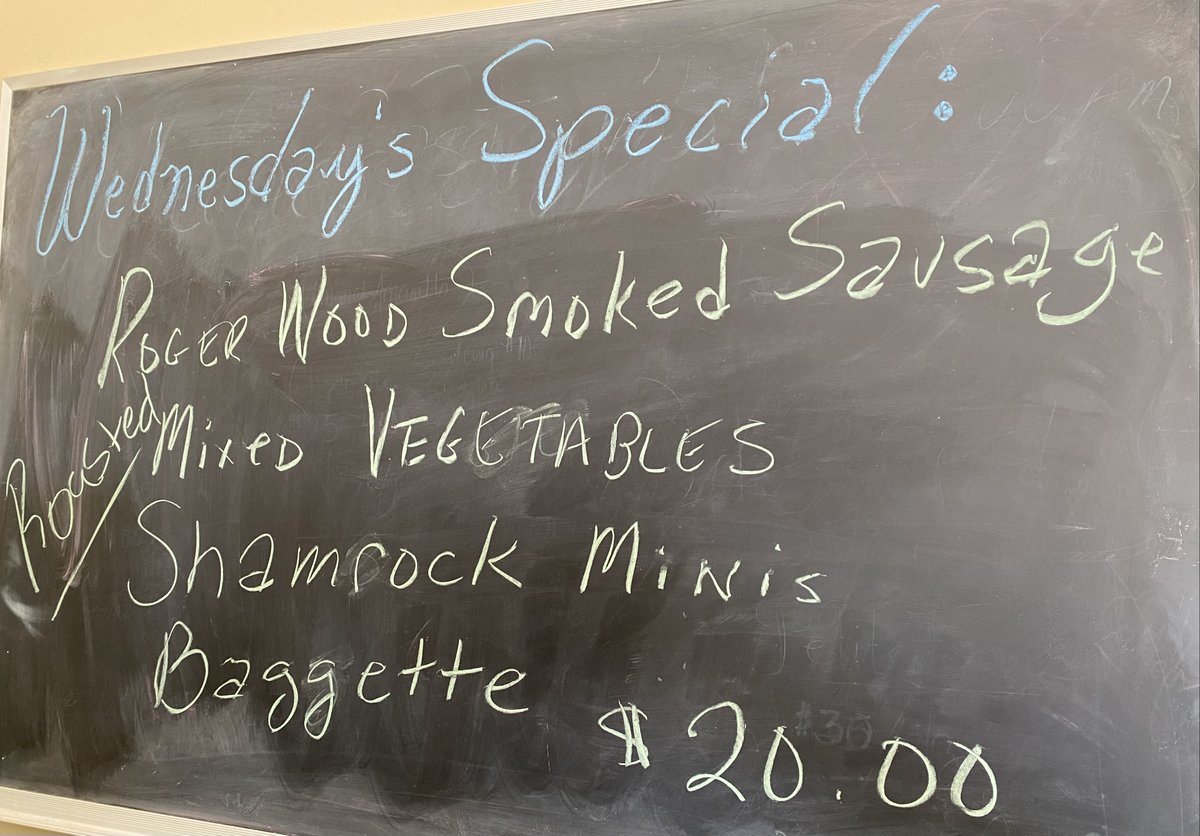 Wednesday's Special:
Roger Wood Smoked Sausage
Roasted Mixed VEGETABLES
Shamrock Minis
Baggette
$20.00